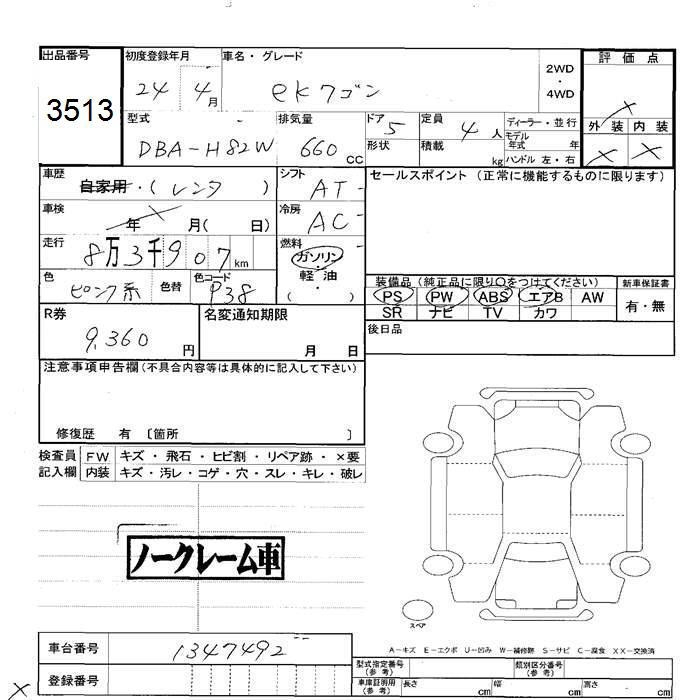 出品番号 初度登録年月 車名・グレード 評価点
3513 24 4月 eKワゴン 2WD・4WD ×
型式 排気量 ドア 5 定員 4人 ディーラー・並行 外装 内装
DBA-H82W 660cc 形状 積載 kg モデル年式 年 × ×
ハンドル 左・右
車歴 自家用・(レンタ) シフト AT セールスポイント(正常に機能するものに限ります)
車検 × 年 月(日) 冷房 AC
走行 8万3千907km 燃料 ガソリン・軽油・( )
色 ピンク系 色替 色コード P38 装備品(純正品に限り○をつけてください) 新車保証書
PS PW ABS エアB AW 有・無
SR ナビ TV カワ
R券 名変通知期限 後日品
9,360円 月 日
注意事項申告欄(不具合内容等は具体的に記入して下さい)
修復歴 有 〔箇所 〕
検査員 FW キズ・飛石・ヒビ割・リペア跡・×要
記入欄 内装 キズ・汚レ・コゲ・穴・スレ・キレ・破レ
ノークレーム車
スペア
A-キズ E-エクボ U-凹み W-補修跡 S-サビ C-腐食 XX-交換済
車台番号 1347492 型式指定番号(参考) 類別区分番号(参考)
登録番号 車庫証明用(参考) 長さ cm 幅 cm 高さ cm
×